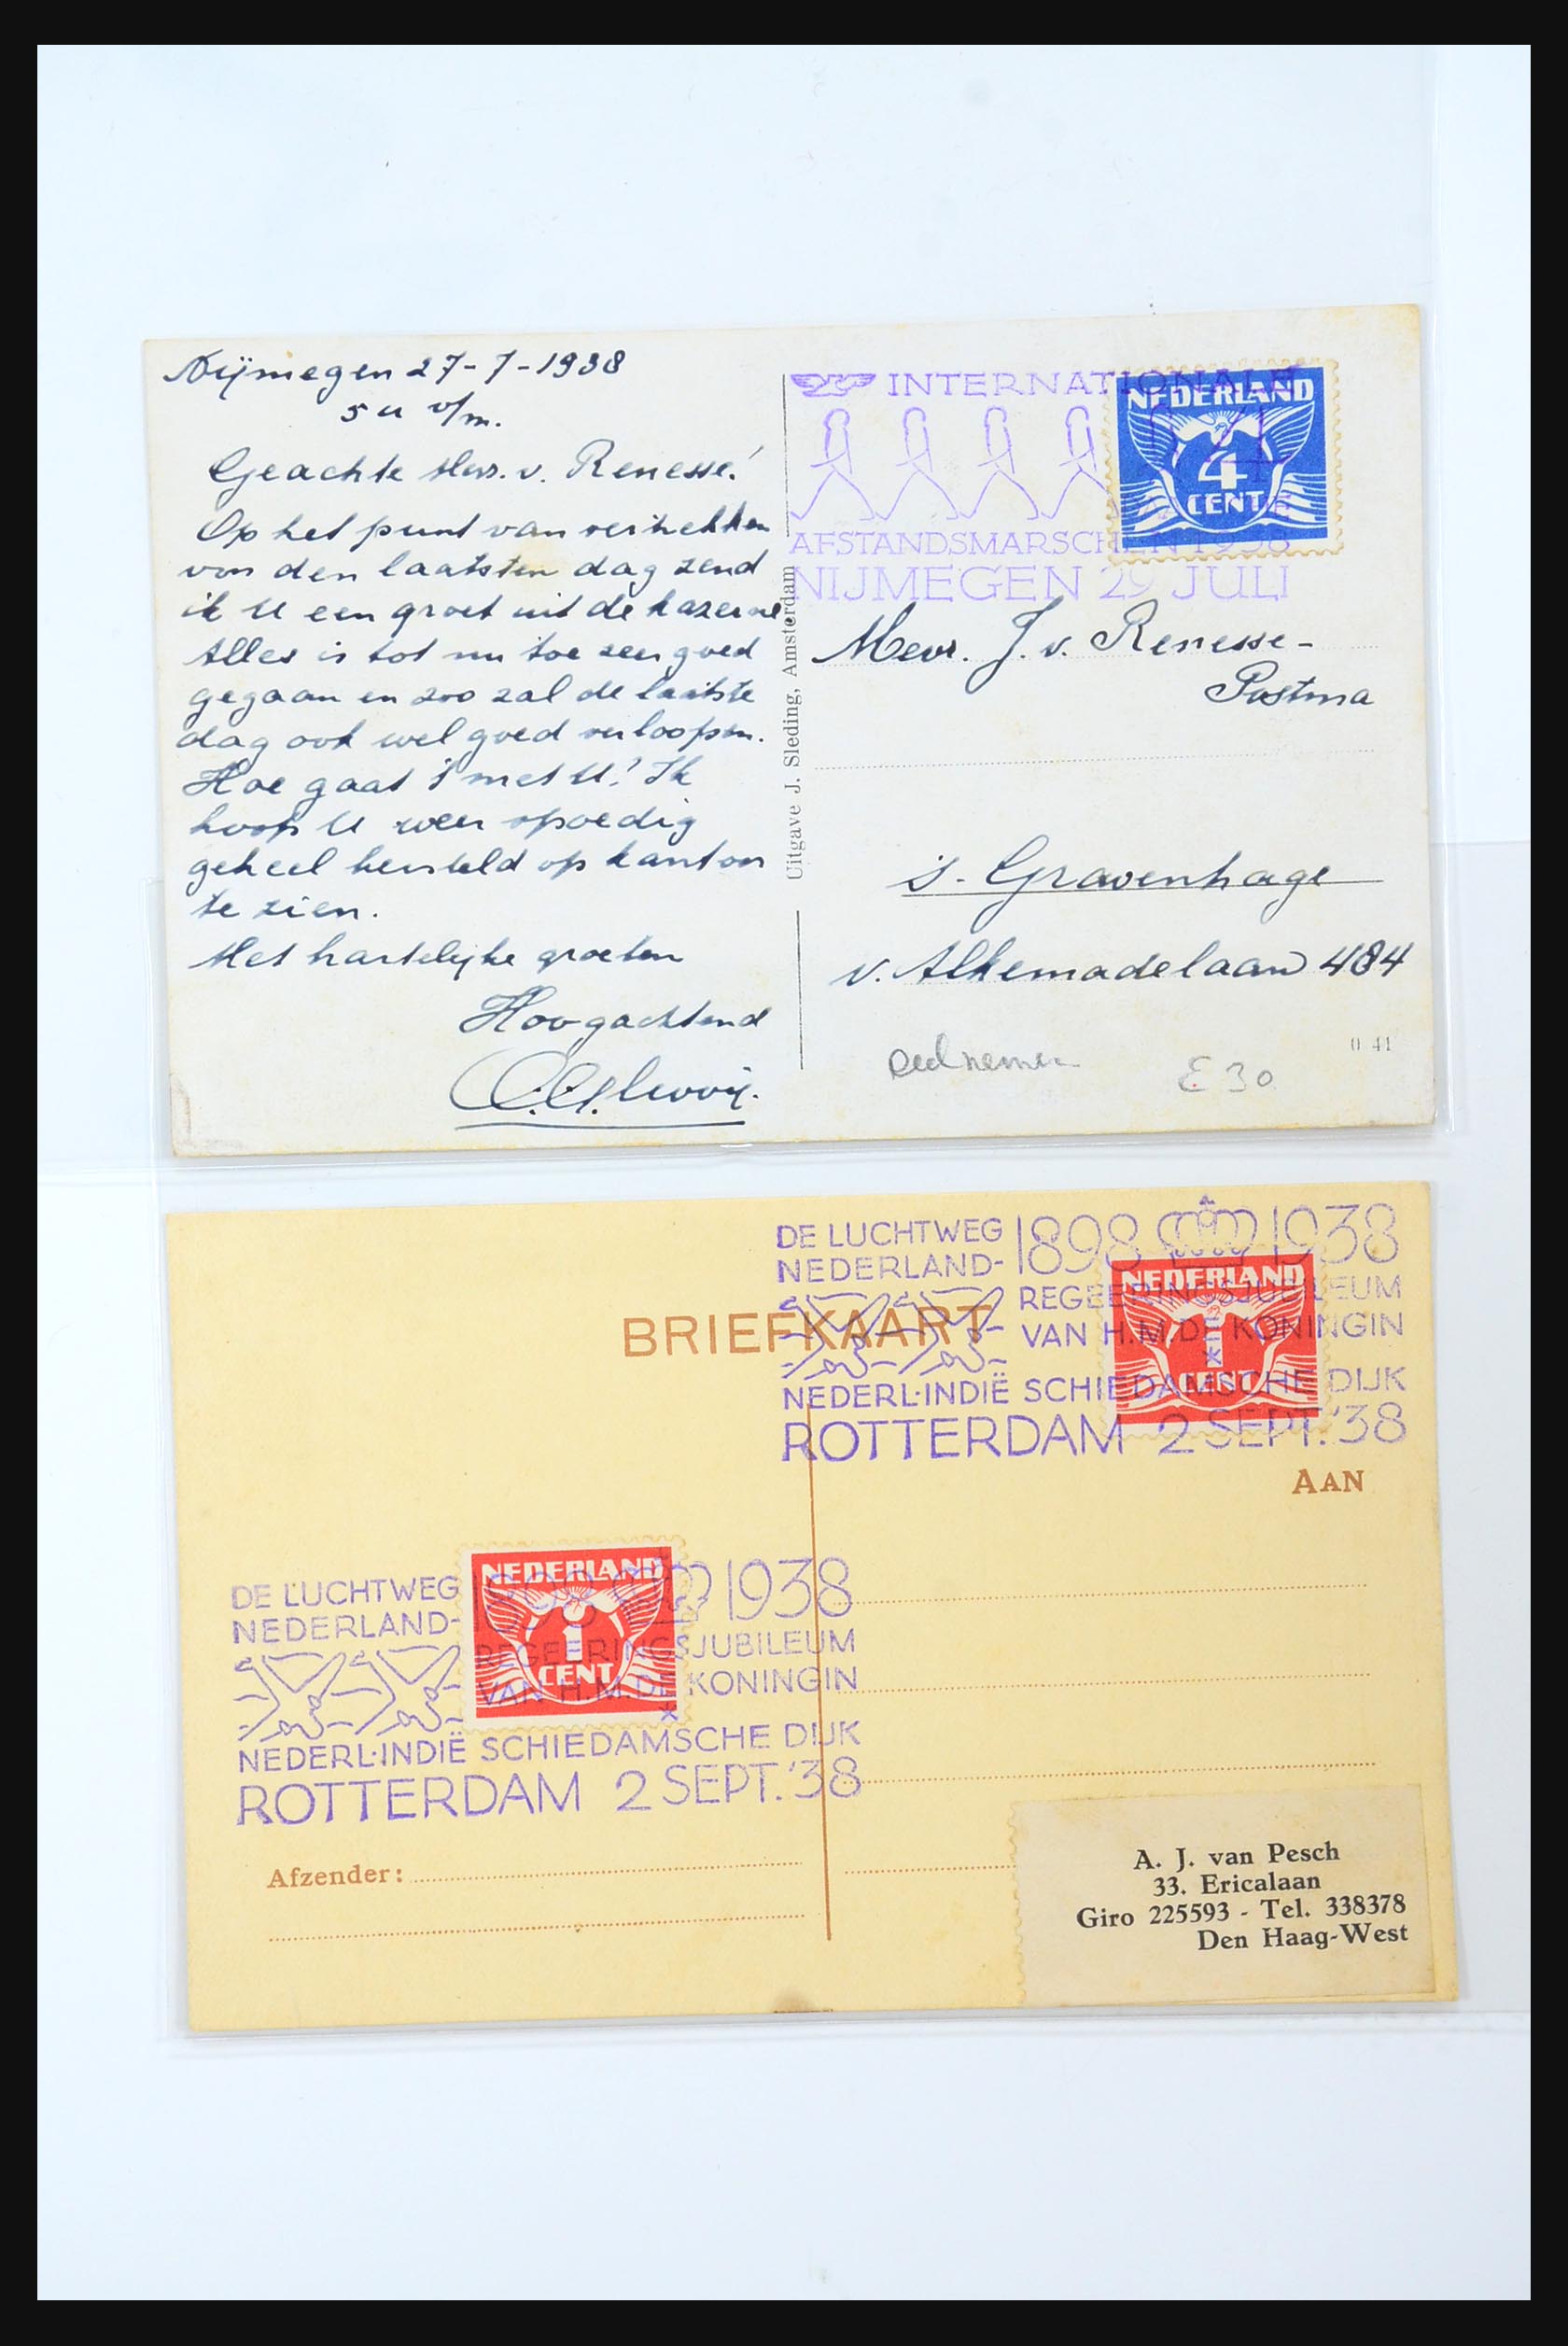 Nijmegen 27-7-1938
5 u v/m.
Geachte Mevr. v. Renesse!
Op het punt van vertrekken
van den laatsten dag zend
ik U een groet uit de kazerne
Alles is tot nu toe zeer goed
gegaan en zoo zal de laatste
dag ook wel goed verloopen.
Hoe gaat 't met U? Ik
hoop U weer spoedig
geheel hersteld op kantoor
te zien.
Met hartelijke groeten
Hoogachtend
Uitgave J. Sleding, Amsterdam
INTERNATIONALE
AFSTANDSMARSCHEN 1938
NIJMEGEN 29 JULI
NEDERLAND
4
CENT
Mevr. J. v. Renesse-
Postma
's-Gravenhage
v. Alkemadelaan 484
Deelnemer
E 30
0 41
DE LUCHTWEG 1898 1938
NEDERLAND-
REGEERINGSJUBILEUM
VAN H.M. DE KONINGIN
NEDERL-INDIË SCHIEDAMSCHE DIJK
ROTTERDAM 2 SEPT. '38
NEDERLAND
1
CENT
BRIEFKAART
AAN
DE LUCHTWEG 1898 1938
NEDERLAND-
REGEERINGSJUBILEUM
VAN H.M. DE KONINGIN
NEDERL-INDIË SCHIEDAMSCHE DIJK
ROTTERDAM 2 SEPT. '38
NEDERLAND
1
CENT
Afzender:
A. J. van Pesch
33. Ericalaan
Giro 225593 - Tel. 338378
Den Haag-West